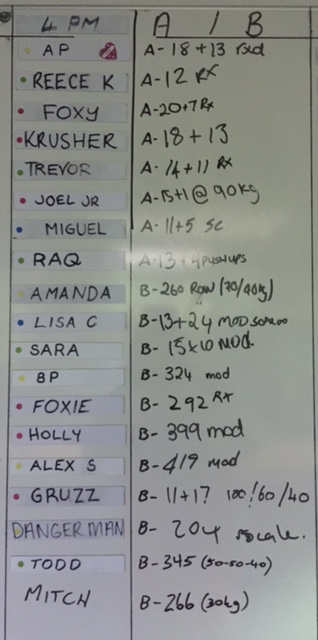 4 PM A / B
AP A- 18+13 rxd
REECE K A-12 RX
FOXY A-20+7 Rx
KRUSHER A- 18+13
TREVOR A- 14+11 RX
JOEL JR A-15+1 @ 90kg
MIGUEL A- 11+5 SC
RAQ A-13+4 pushups
AMANDA B-260 ROW (70/40kg)
LISA C B-13+24 MOD
SARA B- 15x10 MOD
BP B- 324 mod
FOXIE B- 292 RX
HOLLY B- 399 mod
ALEX S B-419 mod
GRUZZ B- 11+17 100/60/40
DANGERMAN B- 204 scale.
TODD B-345 (50-50-40)
MITCH B-266 (30kg)